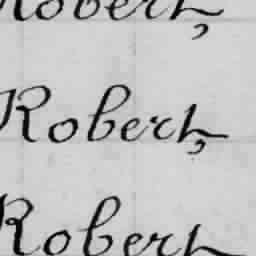 Robert,
Robert,
Robert